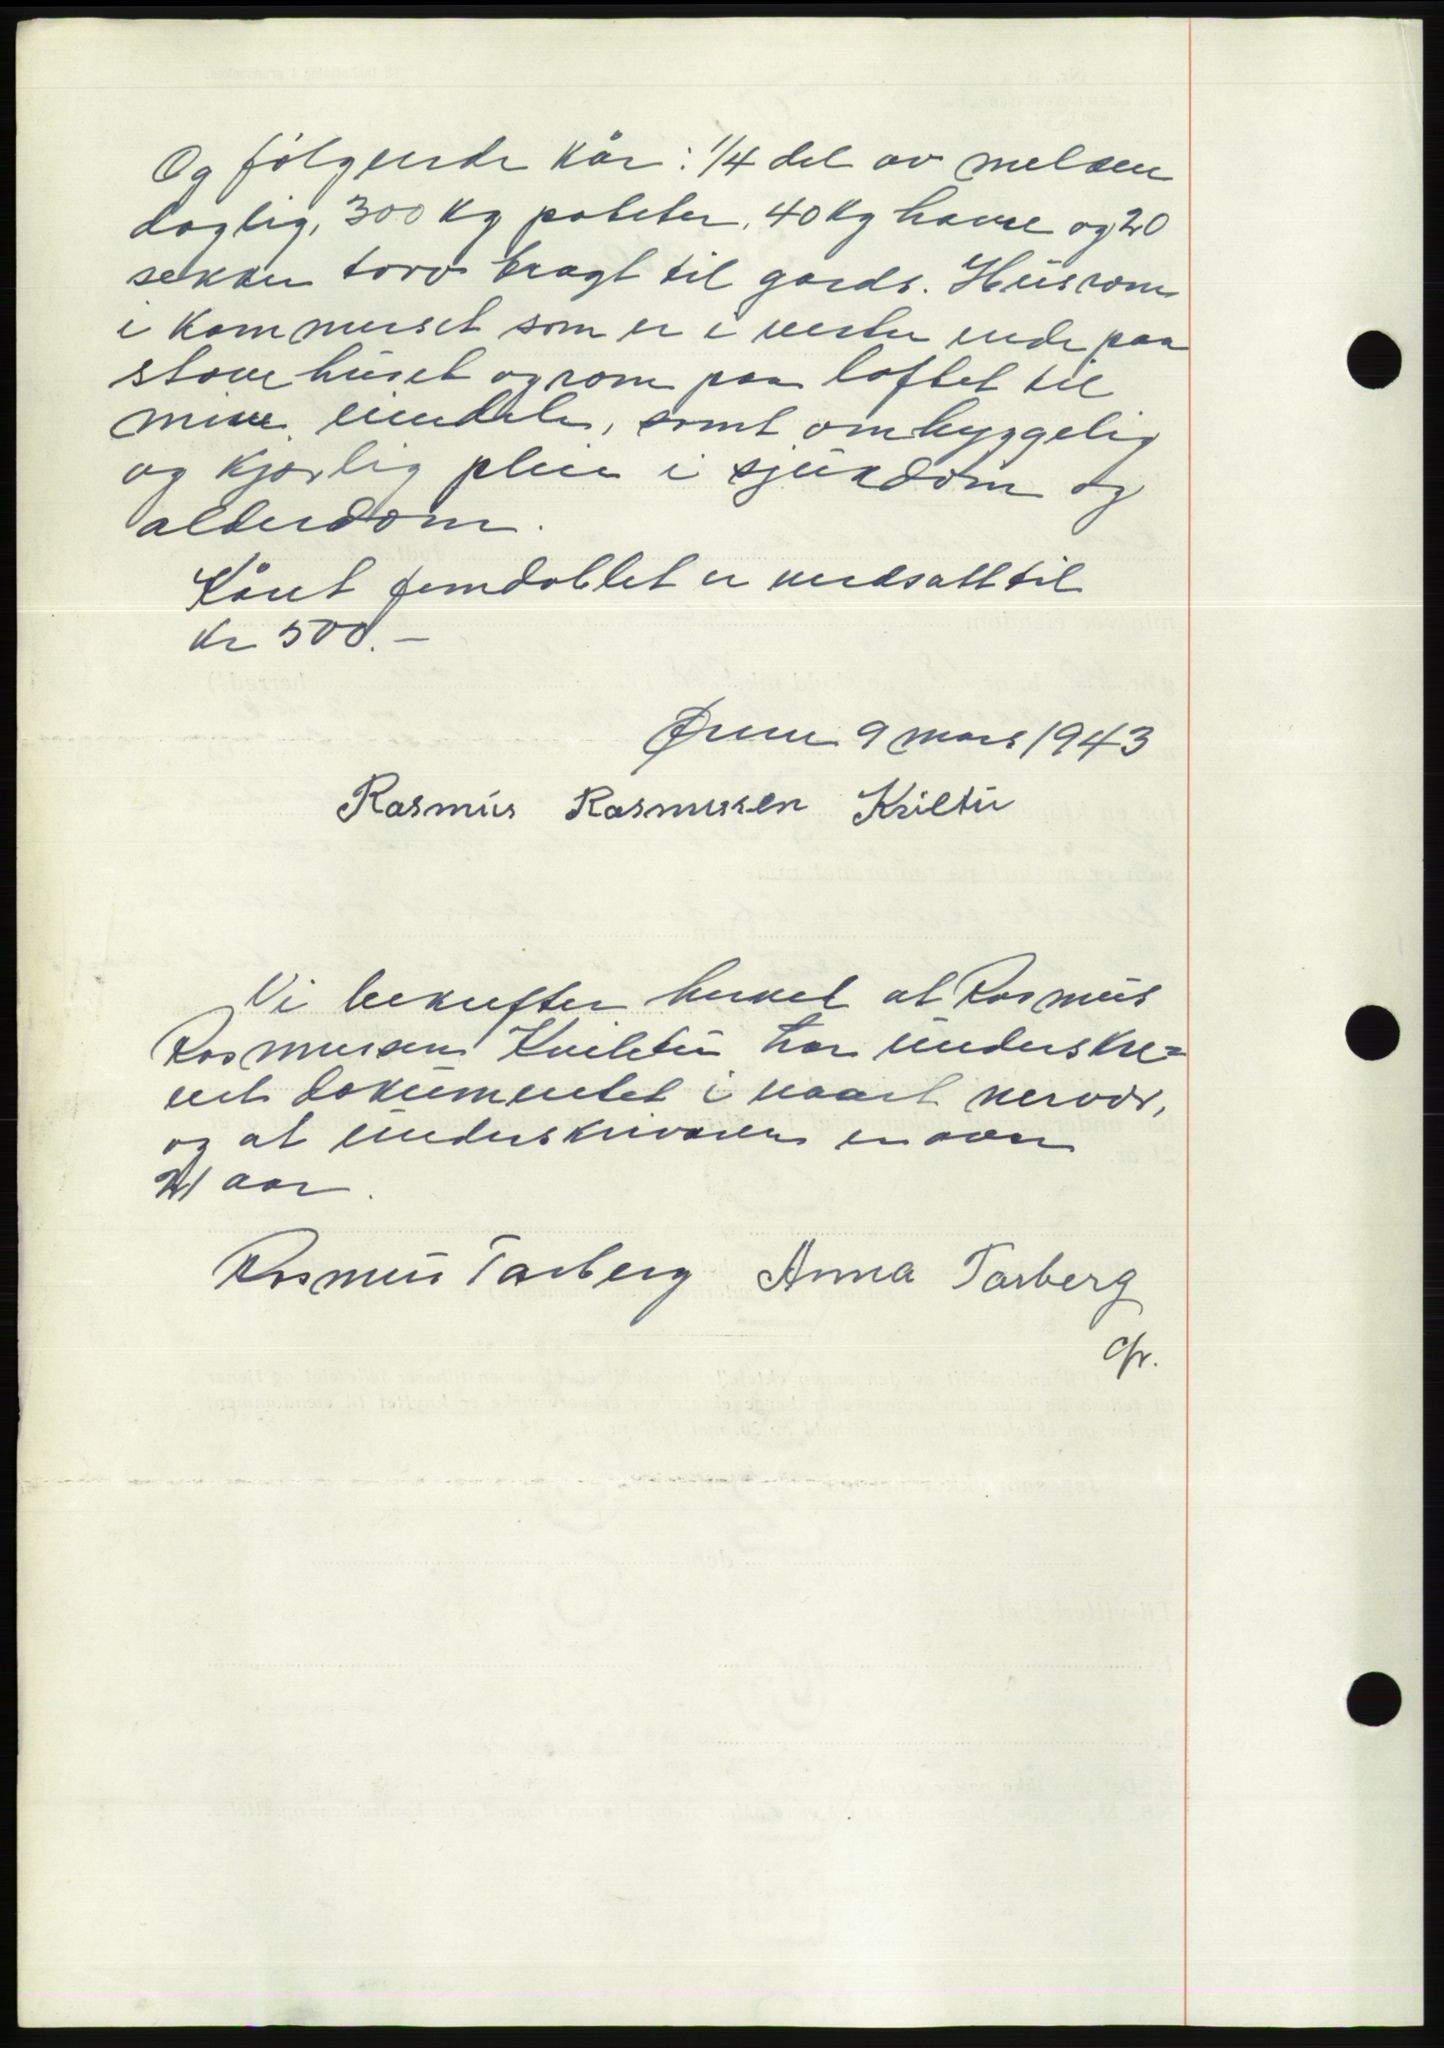 Og følgende kår: 1/4 del av melken
daglig, 300 kg poteter, 40 kg havre og 20
sekker torv bragt til gards. Husrom
i kammerset som er i vestre ende paa
stovehuset og rom paa loftet til
mine eiendeler, samt omhyggelig
og kjærlig pleie i sjukdom og
alderdom.
Kåret femdoblet er verdsatt til
kr 500.-
9 mars 1943
Rasmus Rasmussen Kviltu
Vi bekrefter herved at Rasmus
Rasmussen Kviltu har underskre=
vet dokumentet i vaart nervær,
og at underskriveren er over
21 aar.
Rasmus Tarberg Anna Tarberg